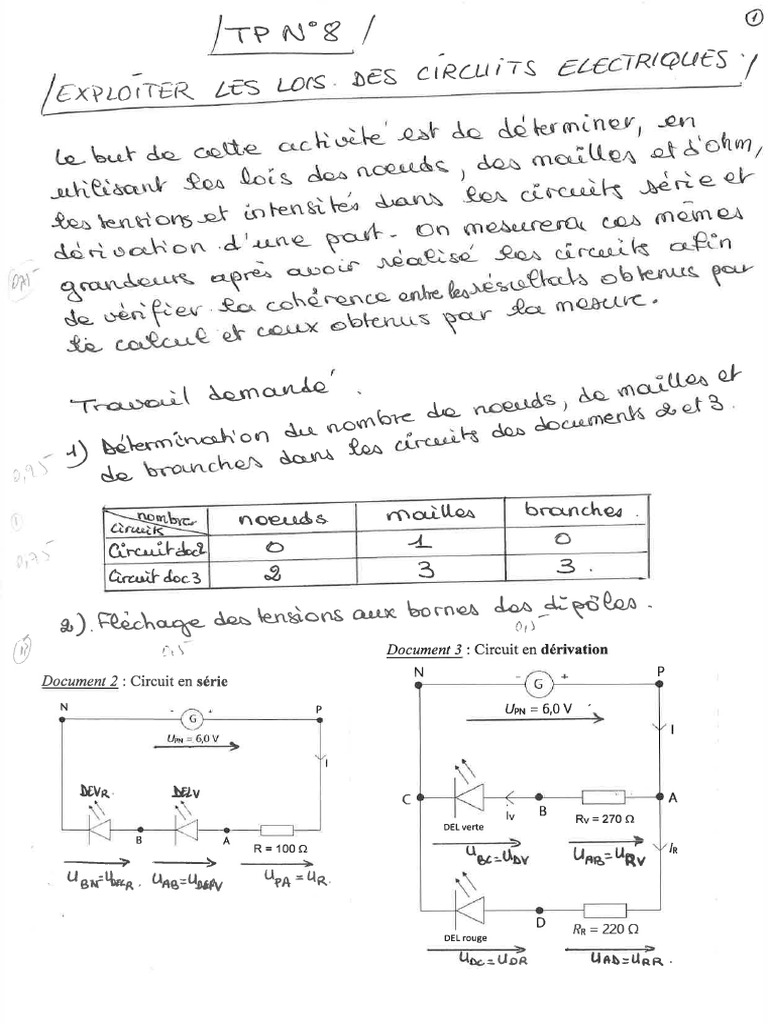 1
TP N°8
EXPLOITER LES LOIS DES CIRCUITS ELECTRIQUES.
Le but de cette activité est de déterminer, en
utilisant les lois des noeuds, des mailles et d'ohm,
les tensions et intensités dans les circuits série et
dérivation d'une part. On mesurera ces mêmes
grandeurs après avoir réalisé les circuits afin
0,75
de vérifier la cohérence entre les résultats obtenus par
le calcul et ceux obtenus par la mesure.
Travail demandé.
1) Détermination du nombre de noeuds, de mailles et
de branches dans les circuits des documents 2 et 3.
0,25
nombre circuits noeuds mailles branches.
1
Circuit doc2 0 1 0
0,75
Circuit doc 3 2 3 3.
2). Fléchage des tensions aux bornes des dipôles.
0,5 0,5
Document 2 : Circuit en série
N - G + P
UPN = 6,0 V
I
DELR DELV
B A R = 100 Ω
UBN=UDELR UAB=UDELV UPA=UR.
Document 3 : Circuit en dérivation
N - G + P
UPN = 6,0 V
I
C Iv B A
DEL verte Rv = 270 Ω
IR
UBC=UDV UAB=URV
D
DEL rouge RR = 220 Ω
UDC=UDR UAD=URR.